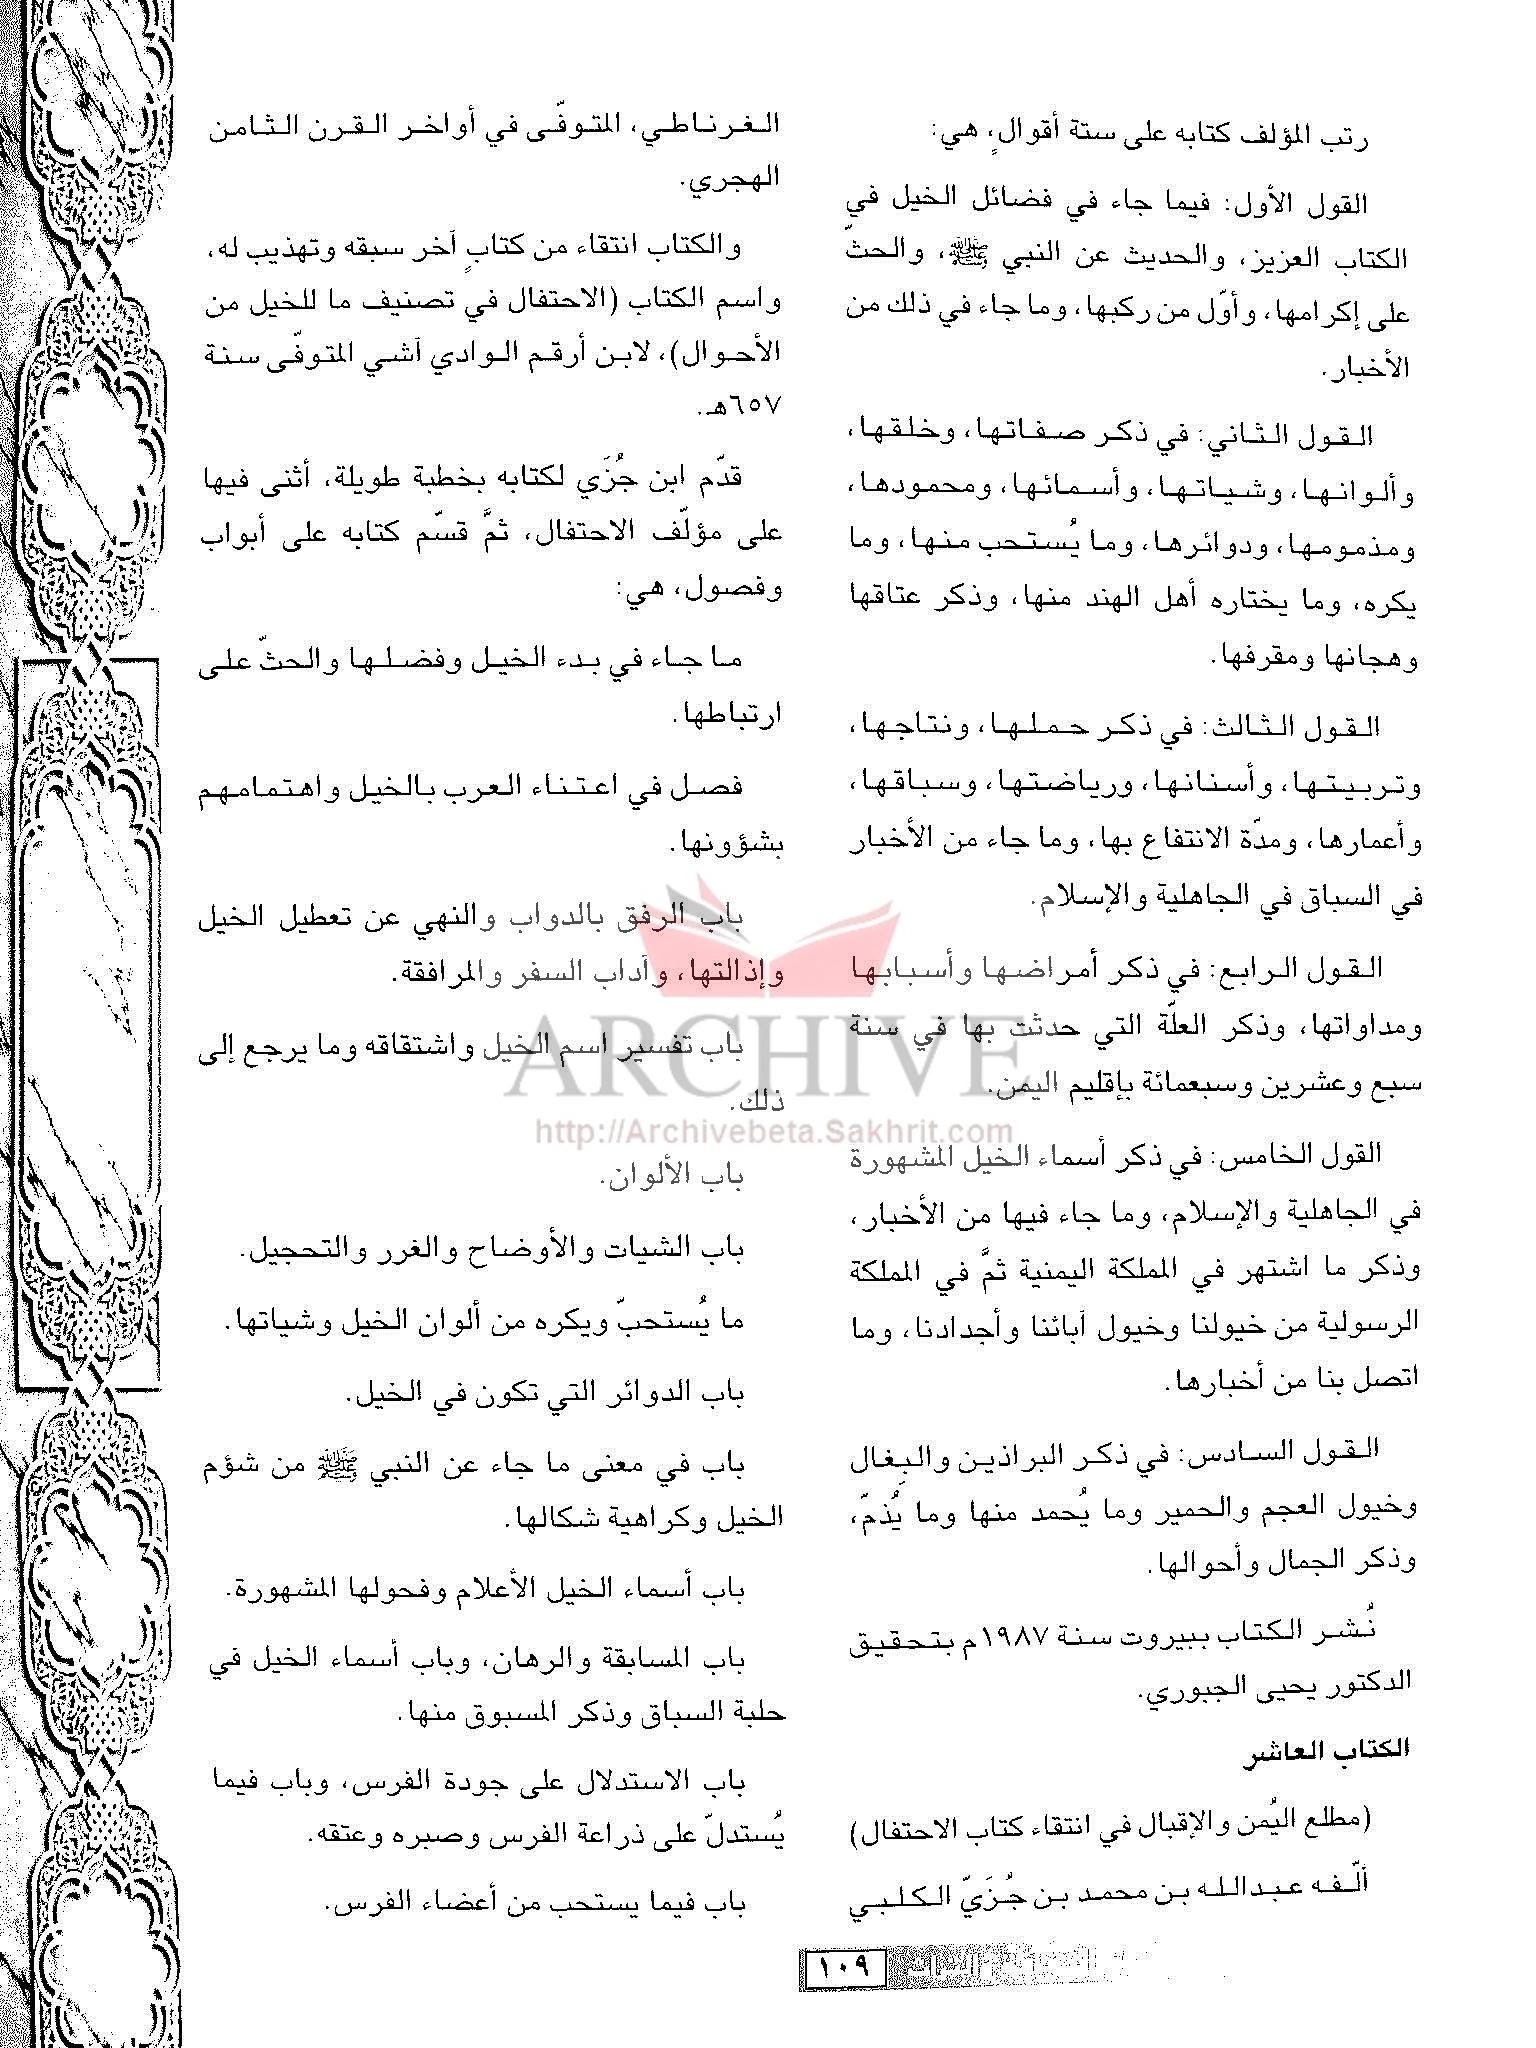 رتب المؤلف كتابه على ستة أقوالٍ، هي:
القول الأول: فيما جاء في فضائل الخيل في
الكتاب العزيز، والحديث عن النبي ﷺ، والحثّ
على إكرامها، وأوّل من ركبها، وما جاء في ذلك من
الأخبار.
القول الثاني: في ذكر صفاتها، وخلقها،
وألوانها، وشياتها، وأسمائها، ومحمودها،
ومذمومها، ودوائرها، وما يُستحب منها، وما
يكره، وما يختاره أهل الهند منها، وذكر عتاقها
وهجانها ومقرفها.
القول الثالث: في ذكر حملها، ونتاجها،
وتربيتها، وأسنانها، ورياضتها، وسباقها،
وأعمارها، ومدّة الانتفاع بها، وما جاء من الأخبار
في السباق في الجاهلية والإسلام.
القول الرابع: في ذكر أمراضها وأسبابها
ومداواتها، وذكر العلّة التي حدثت بها في سنة
سبع وعشرين وسبعمائة بإقليم اليمن.
القول الخامس: في ذكر أسماء الخيل المشهورة
في الجاهلية والإسلام، وما جاء فيها من الأخبار،
وذكر ما اشتهر في المملكة اليمنية ثمَّ في المملكة
الرسولية من خيولنا وخيول آبائنا وأجدادنا، وما
اتصل بنا من أخبارها.
القول السادس: في ذكر البراذين والبغال
وخيول العجم والحمير وما يُحمد منها وما يُذمّ،
وذكر الجمال وأحوالها.
نُشر الكتاب ببيروت سنة ١٩٨٧م بتحقيق
الدكتور يحيى الجبوري.
الكتاب العاشر
(مطلع اليُمن والإقبال في انتقاء كتاب الاحتفال)
ألّفه عبدالله بن محمد بن جُزَيّ الكلبي
الغرناطي، المتوفّى في أواخر القرن الثامن
الهجري.
والكتاب انتقاء من كتابٍ آخر سبقه وتهذيب له،
واسم الكتاب (الاحتفال في تصنيف ما للخيل من
الأحوال)، لابن أرقم الوادي آشي المتوفّى سنة
٦٥٧هـ.
قدّم ابن جُزَي لكتابه بخطبة طويلة، أثنى فيها
على مؤلّف الاحتفال، ثمَّ قسّم كتابه على أبواب
وفصول، هي:
ما جاء في بدء الخيل وفضلها والحثّ على
ارتباطها.
فصل في اعتناء العرب بالخيل واهتمامهم
بشؤونها.
باب الرفق بالدواب والنهي عن تعطيل الخيل
وإذالتها، وآداب السفر والمرافقة.
باب تفسير اسم الخيل واشتقاقه وما يرجع إلى
ذلك.
باب الألوان.
باب الشيات والأوضاح والغرر والتحجيل.
ما يُستحبّ ويكره من ألوان الخيل وشياتها.
باب الدوائر التي تكون في الخيل.
باب في معنى ما جاء عن النبي ﷺ من شؤم
الخيل وكراهية شكالها.
باب أسماء الخيل الأعلام وفحولها المشهورة.
باب المسابقة والرهان، وباب أسماء الخيل في
حلبة السباق وذكر المسبوق منها.
باب الاستدلال على جودة الفرس، وباب فيما
يُستدلّ على ذراعة الفرس وصبره وعتقه.
باب فيما يستحب من أعضاء الفرس.
ARCHIVE
http://Archivebeta.Sakhrit.com
١٠٩